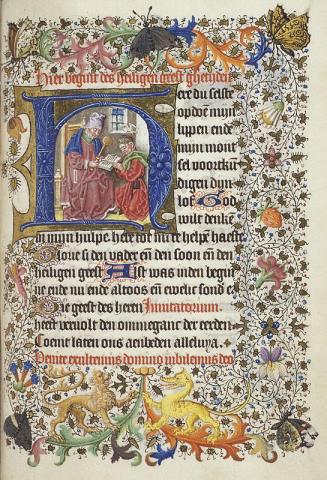 Hier begint des heiligen geest ghetiden
Here du selste
opdoen mijn
lippen ende
mijn mont
sel voertkun
dighen dijn
lof God
wilt denken
in mijn hulpe here tot mi te helpen haeste
Glorie si den vader en̄ den soon en̄ den
heiligen geest Als t was inden begin
ne ende nu ende altoos en̄ ewelic sonder e
Die geest des heren Invitatorium
heeft vervolt den ommeganc der eerden
Coemt laten ons aenbeden alleluya.
Venite exultemus domino iubilemus deo